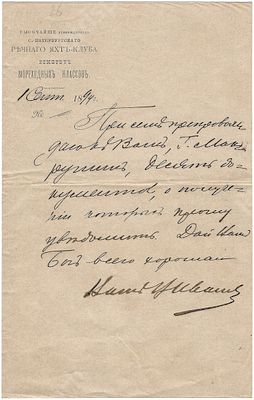 ВЫСОЧАЙШЕ утвержденнаго
С.-ПЕТЕРБУРГСКАГО
РѢЧНАГО ЯХТЪ-КЛУБА
КОМИТЕТЪ
МОРЕХОДНЫХЪ КЛАССОВЪ.
1 1894 г.
№
При семъ препровож
даю къ Вамъ, Г.
десять до-
кументовъ, о получе-
ніи которыхъ прошу
увѣдомить. Дай Вамъ
Богъ всего хорошаго